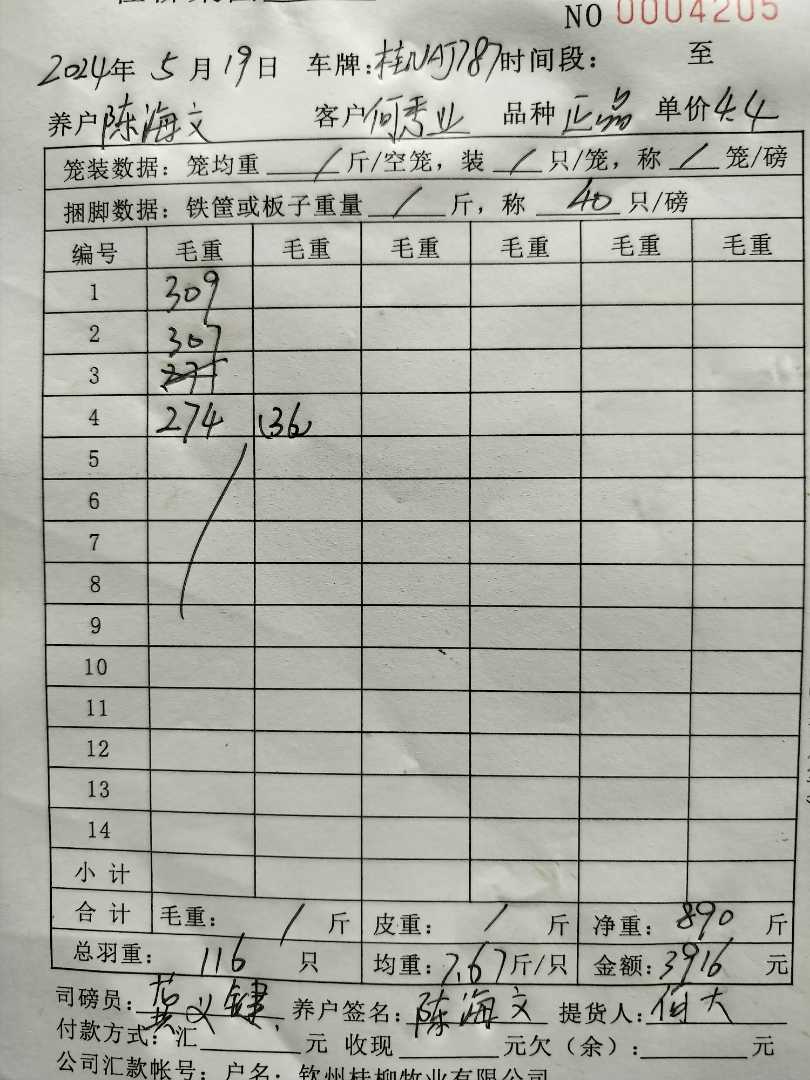 NO 0004205
2024年 5 月 19 日 车牌:桂NAJ787 时间段: 至
养户 陈海文 客户 何秀业 品种 正品 单价 4.4
笼装数据: 笼均重 / 斤/空笼, 装 / 只/笼, 称 / 笼/磅
捆脚数据: 铁筐或板子重量 / 斤, 称 40 只/磅
编号 毛重 毛重 毛重 毛重 毛重 毛重
1 309
2 307
3
4 274 (36)
5
6
7
8
9
10
11
12
13
14
小计
合计 毛重: / 斤 皮重: / 斤 净重: 890 斤
总羽重: 116 只 均重: 7.67 斤/只 金额: 3916 元
司磅员: 黄义键 养户签名: 陈海文 提货人: 何大
付款方式: 汇 元 收现 元欠(余): 元
公司汇款帐号: 户名: 钦州桂柳牧业有限公司